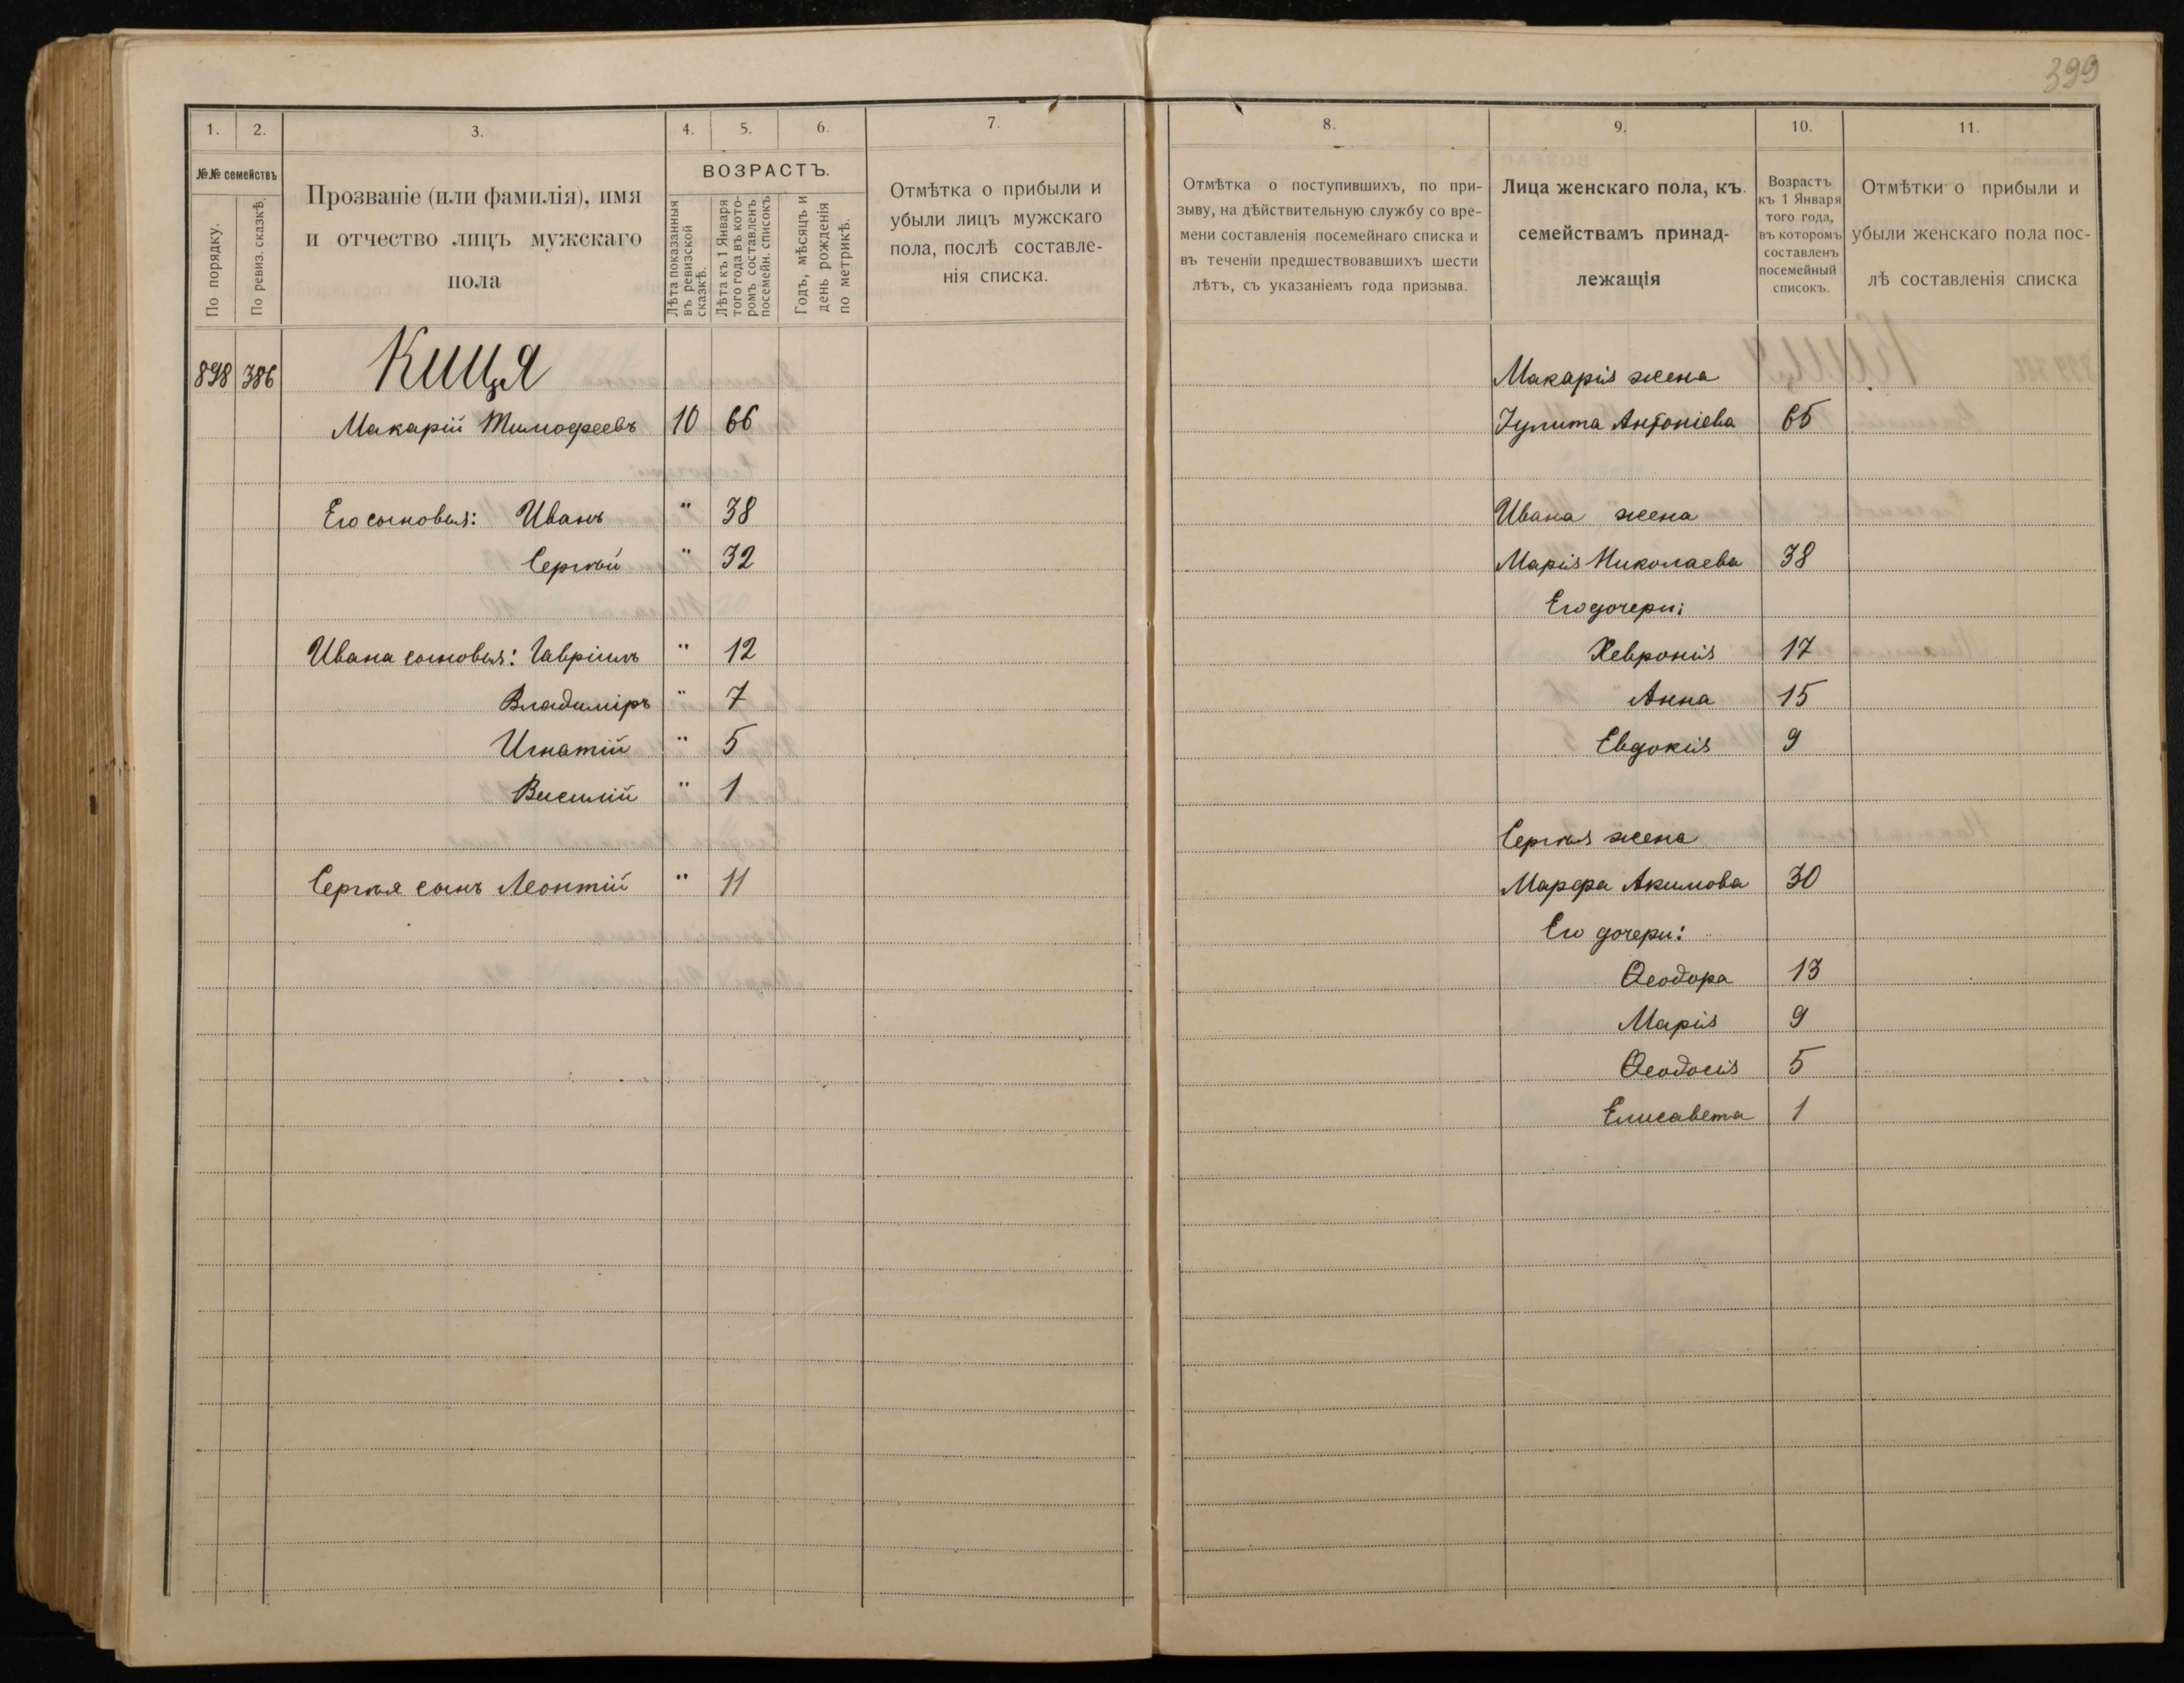 399
1. 2. 3. 4. 5. 6. 7.
№№ семействъ
По порядку.
По ревиз. сказкѣ.
Прозваніе (или фамилія), имя
и отчество лицъ мужскаго
пола
ВОЗРАСТЪ.
Лѣта показанныя
въ ревизской
сказкѣ.
Лѣта къ 1 Января
того года въ кото-
ромъ составленъ
посемейн. списокъ
Годъ, мѣсяцъ и
день рожденія
по метрикѣ.
Отмѣтка о прибыли и
убыли лицъ мужскаго
пола, послѣ составле-
нія списка.
898 386 Кищя
Макарій Тимофеевъ 10 66
Его сыновья: Иванъ " 38
Сергѣй " 32
Ивана сыновья: Гавріилъ " 12
Владиміръ " 7
Игнатій " 5
Василій " 1
Сергѣя сынъ Леонтій " 11
8. 9. 10. 11.
Отмѣтка о поступившихъ, по при-
зыву, на дѣйствительную службу со вре-
мени составленія посемейнаго списка и
въ теченіи предшествовавшихъ шести
лѣтъ, съ указаніемъ года призыва.
Лица женскаго пола, къ
семействамъ принад-
лежащія
Возрастъ
къ 1 Января
того года,
въ которомъ
составленъ
посемейный
списокъ.
Отмѣтки о прибыли и
убыли женскаго пола пос-
лѣ составленія списка
Макарія жена
Іулита Антоніева 65
Ивана жена
Марія Николаева 38
Его дочери:
Хевронія 17
Анна 15
Евдокія 9
Сергѣя жена
Марфа Акимова 30
Его дочери:
Ѳеодора 13
Марія 9
Ѳеодосія 5
Елисавета 1